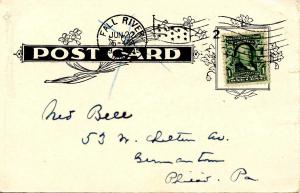 FALL RIVER
JUN 22
2
POST CARD
Ned Bell
53 W. Chelten Av.
Germantown
Phila. Pa